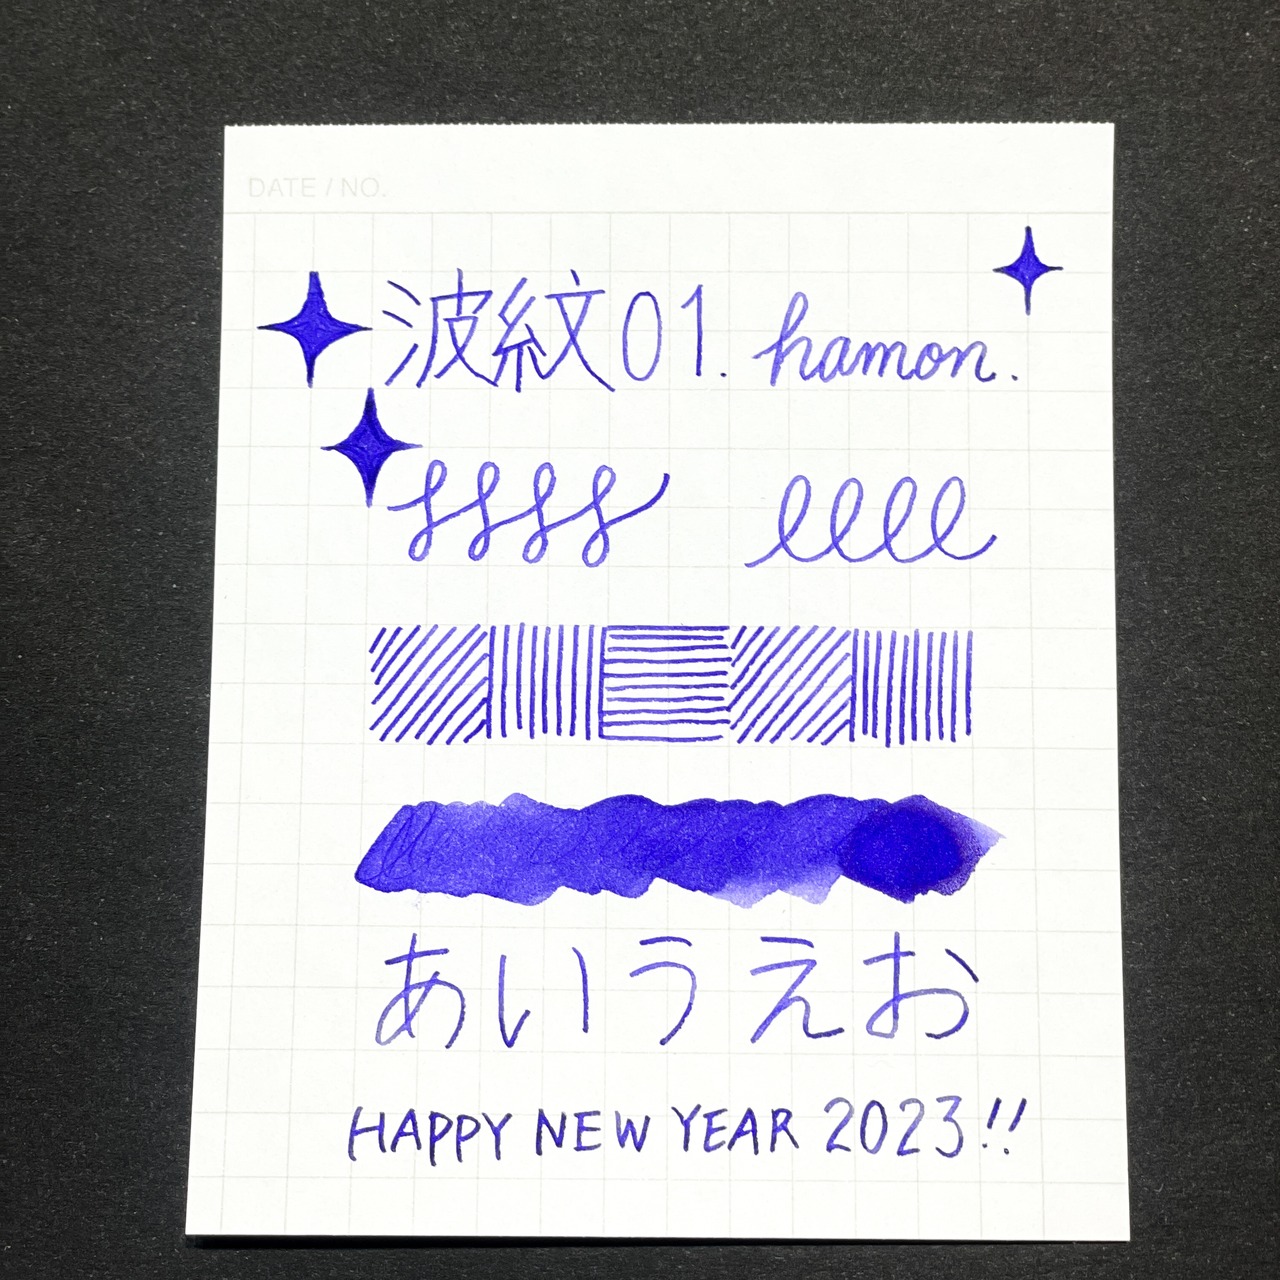 DATE / NO.
波紋01. hamon.
llll
あいうえお
HAPPY NEW YEAR 2023!!